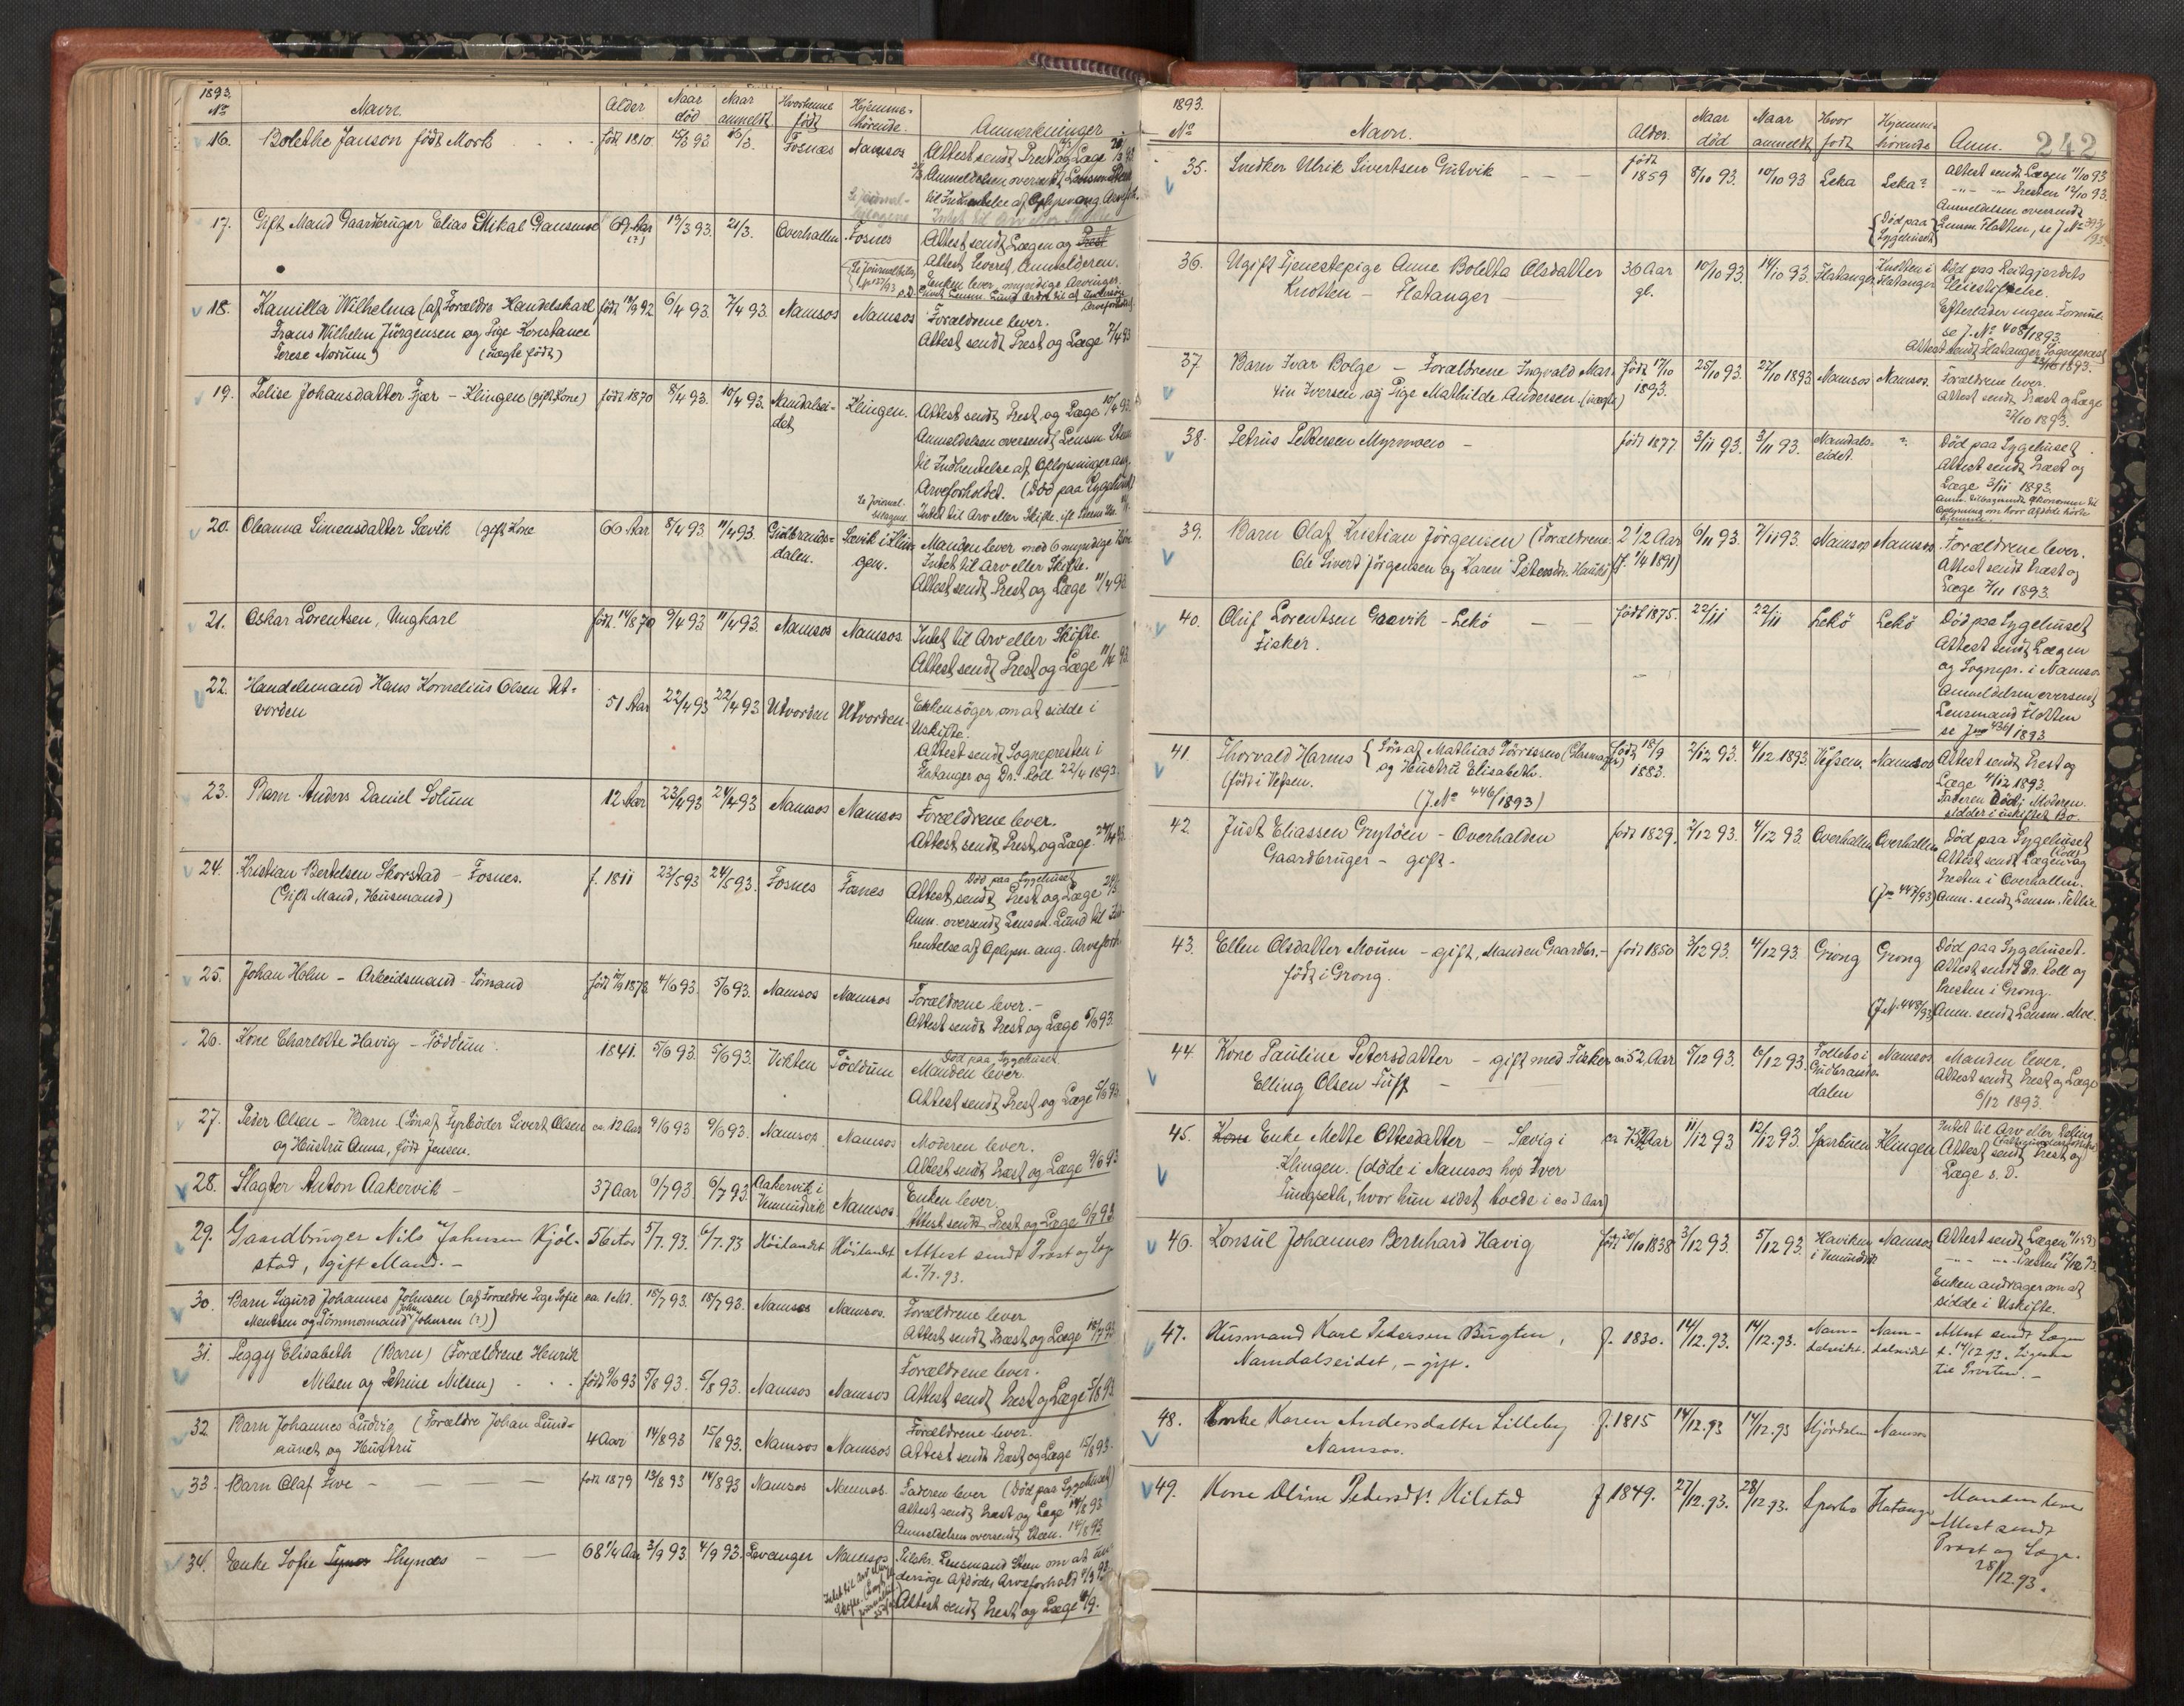 1893.
No Navn. Alder Naar død Naar anmeldt Hvorhenne født Hjemme-hørende. Anmerkninger
16. Bolethe Janson født Mork født 1810. 15/3 93. 16/3. Fosnæs Namsos Attest sendt Prest og Læge
Anmeldelsen oversendt Lensm. Steen
til Indhentelse af Oplysn. ang. Arvefh.
17. Gift Mand Gaardbruger Elias Mikal 69 Aar (?) 19/3 93. 21/3. Overhallen Fosnes Attest sendt Lægen og
Attest leveret Anmelderen.
Enken lever, myndige Arvinger.
18. Kamilla Wilhelma (af Forældre Handelskarl født 18/9 92 6/4 93. 7/4 93. Namsos Namsos Forældrene lever.
Frans Wilhelm Jürgensen og Pige Konstance Attest sendt Prest og Læge 7/4 93
Terese Norum) (uægte født)
19. Telise Johansdatter Fjær – Klingen (gift Kone) født 1870 8/4 93. 10/4 93. Namdalsei-det Klingen. Attest sendt Prest og Læge 10/4 93.
Anmeldelsen oversendt Lensm. Steen
til Indhentelse af Oplysninger ang.
Arveforholdet. (Død paa Sygehuset
Intet til Arv eller Skifte.
20. Oleanna Simensdatter Sævik (gift Kone 66 Aar 8/4 93. 11/4 93. Gudbrands-dalen. Sævik i Klin-gen. Manden lever med 6 myndige Børn
Intet til Arv eller Skifte.
Attest sendt Prest og Læge 11/4 93
21. Oskar Lorentsen, Ungkarl født 14/1 870 9/4 93 11/4 93. Namsos Namsos. Intet til Arv eller Skifte.
Attest sendt Prest og Læge 11/4 93
22. Handelsmand Hans Kornelius Olsen Ut- 51 Aar 22/4 93 22/4 93 Utvorden Utvorden. Enken søger om at sidde i
vorden Uskifte.
Attest sendt Sognepresten i
Flatanger og Dr. Roll 22/4 1893.
23. Barn Anders Daniel Solum 12 Aar 23/4 93 24/4 93 Namsos Namsos Forældrene lever.
Attest sendt Prest og Læge 24/4 93.
24. Kristian Bertelsen Skorstad – Fosnes. f. 1811 23/5 93 24/5 93. Fosnes Fosnes Død paa Sygehuset
(Gift Mand, Husmand) Attest sendt Prest og Læge 24/5
Anm. oversendt Lensm. Lund til Ind-
hentelse af Oplysn. ang. Arveforh.
25. Johan Holm – Arbeidsmand – født 1873. 4/6 93. 5/6 93. Namsos Namsos Forældrene lever. –
Attest sendt Prest og Læge 5/6 93.
26. Kone Charlotte Havig – Föddum. 1841. 5/6 93. 5/6 93. Vikten Föddum Død paa Sygehuset.
Manden lever.
Attest sendt Prest og Læge 5/6 93.
27. Peder Olsen – Barn (Søn af Fyrbøder Sivert Olsen ca. 12 Aar 9/6 93 9/6 93. Namsos. Namsos Moderen lever.
og Hustru Anna, født Jensen. Attest sendt Prest og Læge 9/6 93
28. Slagter Anton Aakervik – 37 Aar 6/7 93. 6/7 93. Aakervik i Vemundvik Namsos. Enken lever.
Attest sendt Prest og Læge 6/7 93
29. Gaardbruger Nils Johnsen Kjøl- 56 Aar 5/7. 93. 6/7. 93 Høilandet Høilandet Attest sendt Prest og Læge
stad, gift Mand. – d. 7/7. 93.
30. Barn Sigurd Johannes Johnsen (af Forældre Pige Sofie ca. 1 Md. 18/7 93. 18/7 93. Namsos Namsos. Forældrene lever
Mentsen og Tømmermand John Johnsen (?)) Attest sendt Præst og Læge 18/7 93
31. Peggy Elisabeth (Barn) (Forældrene Henrik Forældrene lever.
Nilsen og Petrine Nilsen) født 9/6 93 5/8 93. 5/8 93. Namsos Namsos Attest sendt Prest og Læge 5/8 93
32 Barn Johannes Ludvig (Forældre Johan Lund- 4 Aar 14/8 93 15/8 93. Namsos Namsos Forældrene lever.
aunet og Hustru Attest sendt Præst og Læge 15/8 93.
33. Barn Olaf Five – født 1879 13/8 93 14/8 93 Namsos Namsos. Faderen lever (Død paa Sygehuset)
Attest sendt Præst og Læge 14/8 93
Anmeldelsen oversendt Steen. 14/8 93
34. Enke Sofie Thynæs 68 1/4 Aar 3/9 93. 4/9 93. Levanger Namsos. Tilskr. Lensmand Steen om at un-
dersøge Afdødes Arveforhold 4/9 93
Attest sendt Prest og Læge 4/9.
1893.
242
No Navn. Alder. Naar død Naar anmeldt Hvor født Hjemme-hørende Anm.
35. Snedker Ulrik Sivertsen Gutvik født 1859 8/10 93. 10/10 93 Leka Leka? Attest sendt Lægen 11/10 93
Presten 12/10 93.
Anmeldelsen oversendt
(Død paa Sygehuset) Lensm. Flotten, se J. No 393/93
36. Ugift Tjenestepige Anne Boletta Olsdatter 36 Aar gl. 10/10 93. 14/10 93. Flatanger Knotten i Flatanger Død paa Reitgjerdets
Knotten – Flatanger Pleiestiftelse.
Efterlader ingen Formue.
se J. No 408/1893.
Attest sendt Flatanger Sogneprest
37. Barn Ivar Bolge – Forældrene Ingvald Mar- født 17/10 1893. 25/10 93. 27/10 1893. Namsos Namsos. Forældrene lever.
tin Iversen og Pige Mathilde Andersen. (uægte) Attest sendt Præst og Læge
27/10 1893.
38. Petrus Pettersen Myrmoen – født 1877. 3/11 93. 3/11 93. Namdals-eidet ? Død paa Sygehuset.
Attest sendt Præst og
Læge 3/11 1893.
39. Barn Olaf Kristian Jörgensen (Forældrene 2 1/2 Aar 6/11 93. 7/11 93. Namsos Namsos. Forældrene lever.
Ole Sivert Jörgensen og Karen Petersdtr. (f. 1/4 1891) Attest sendt Præst og
Læge 7/11 1893.
40. Oluf Lorentsen Gaavik – Lekö født 1875. 22/11 22/11 Lekö Lekö Død paa Sygehuset
Fisker. Attest sendt Lægen
og Sognepr. i Namsos
Anmeldelsen oversendt
Lensmand Flotten
se J. No 436/1893
41. Thorvald Harms {Søn af Mathias Törrissen født 18/9 1883. 2/12 93. 4/12 1893 Vefsen. Namsos Attest sendt Prest og
(født i Vefsen. og Hustru Elisabeth. Læge 4/12 1893.
(J. No 446/1893) Faderen død; Moderen
sidder i uskiftet Bo.
42. Just Eliassen Gryløen – Overhalden født 1829. 2/12 93. 4/12 93. Overhallen Overhallen Død paa Sygehuset
Gaardbruger – gift. Attest sendt Lægen (Roll) og
Presten i Overhallen.
(J. No 447/93) Anm. sendt Lensm.
43. Ellen Olsdatter Moum – gift, Manden Gaardbr. – født 1850 3/12 93. 4/12 93. Grong Grong Død paa Sygehuset.
født i Grong. Attest sendt Dr. Roll og
Presten i Grong.
(J. No 448/93) Anm. sendt Lensm. Moe.
44. Kone Pauline Petersdatter – gift med Fisker ca 52 Aar 5/12 93. 6/12 93. Follebo i Gudbrands-dalen Namsos Manden lever.
Elling Olsen Tuft – Attest sendt Prest og Læge
6/12 1893.
45. Kone Enke Mette Ottesdatter – Sævig i 11/12 93 12/12 93. Sparbuen Klingen Intet til Arv eller Deling
Klingen. (døde i Namsos hos Iver Attest sendt Prest og
Tungseth, hvor hun sidst boede i ca 3 Aar) Læge s. D.
46. Konsul Johannes Bernhard Havig født 20/10 1838 3/12 93. 5/12 93. Haviken i Vemundvik Namsos Attest sendt Lægen
Presten 12/12 93.
Enken andrager om at
sidde i Uskifte.
47. Husmand Karl Pedersen Bugten, f. 1830. 14/12. 93. 14/12. 93. Nam-dalseidet. Nam-dalseidet Attest sendt Lægen
Namdalseidet, – gift. d. 14/12 93. Ligesaa
til Presten. –
48. Enke Karen Andersdatter Lilleby f. 1815 14/12. 93 14/12. 93 Stjørdalen Namsos
Namsos.
49. Kone Oline Pedersdtr. Hilstad f 1849. 27/12. 93. 28/12. 93. Sparbo Flatanger Manden lever
Attest sendt
Præst og Læge.
28/12. 93.